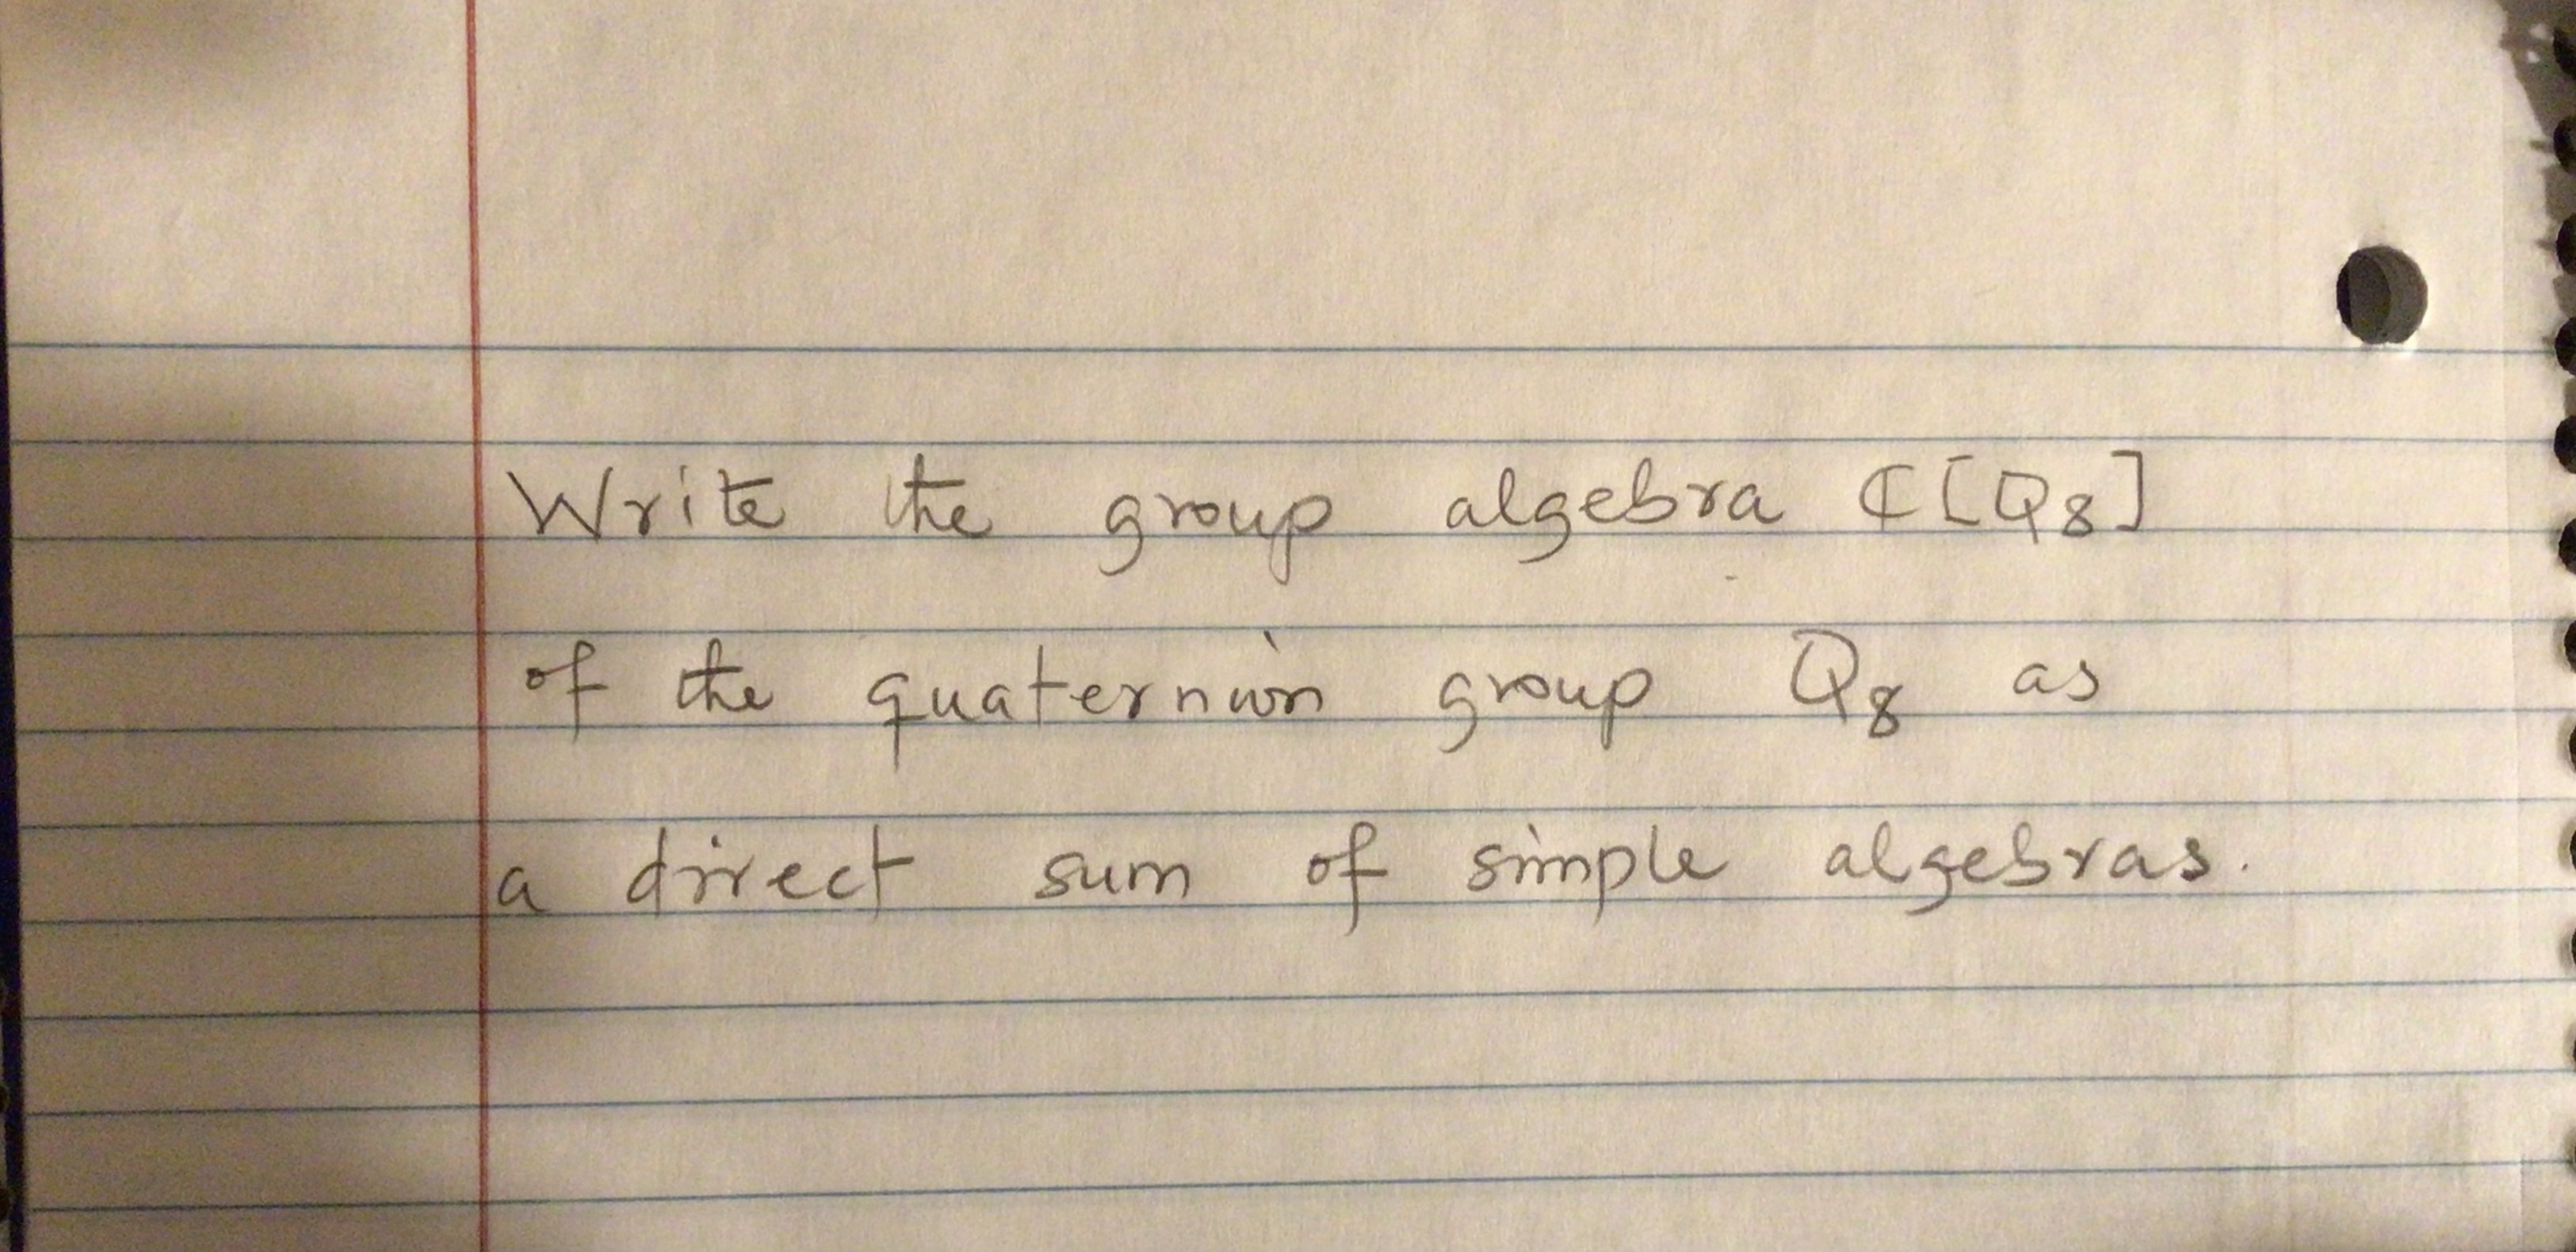 Write the group algebra ℂ[Q₈]
of the quaternion group Q₈ as
a direct sum of simple algebras.